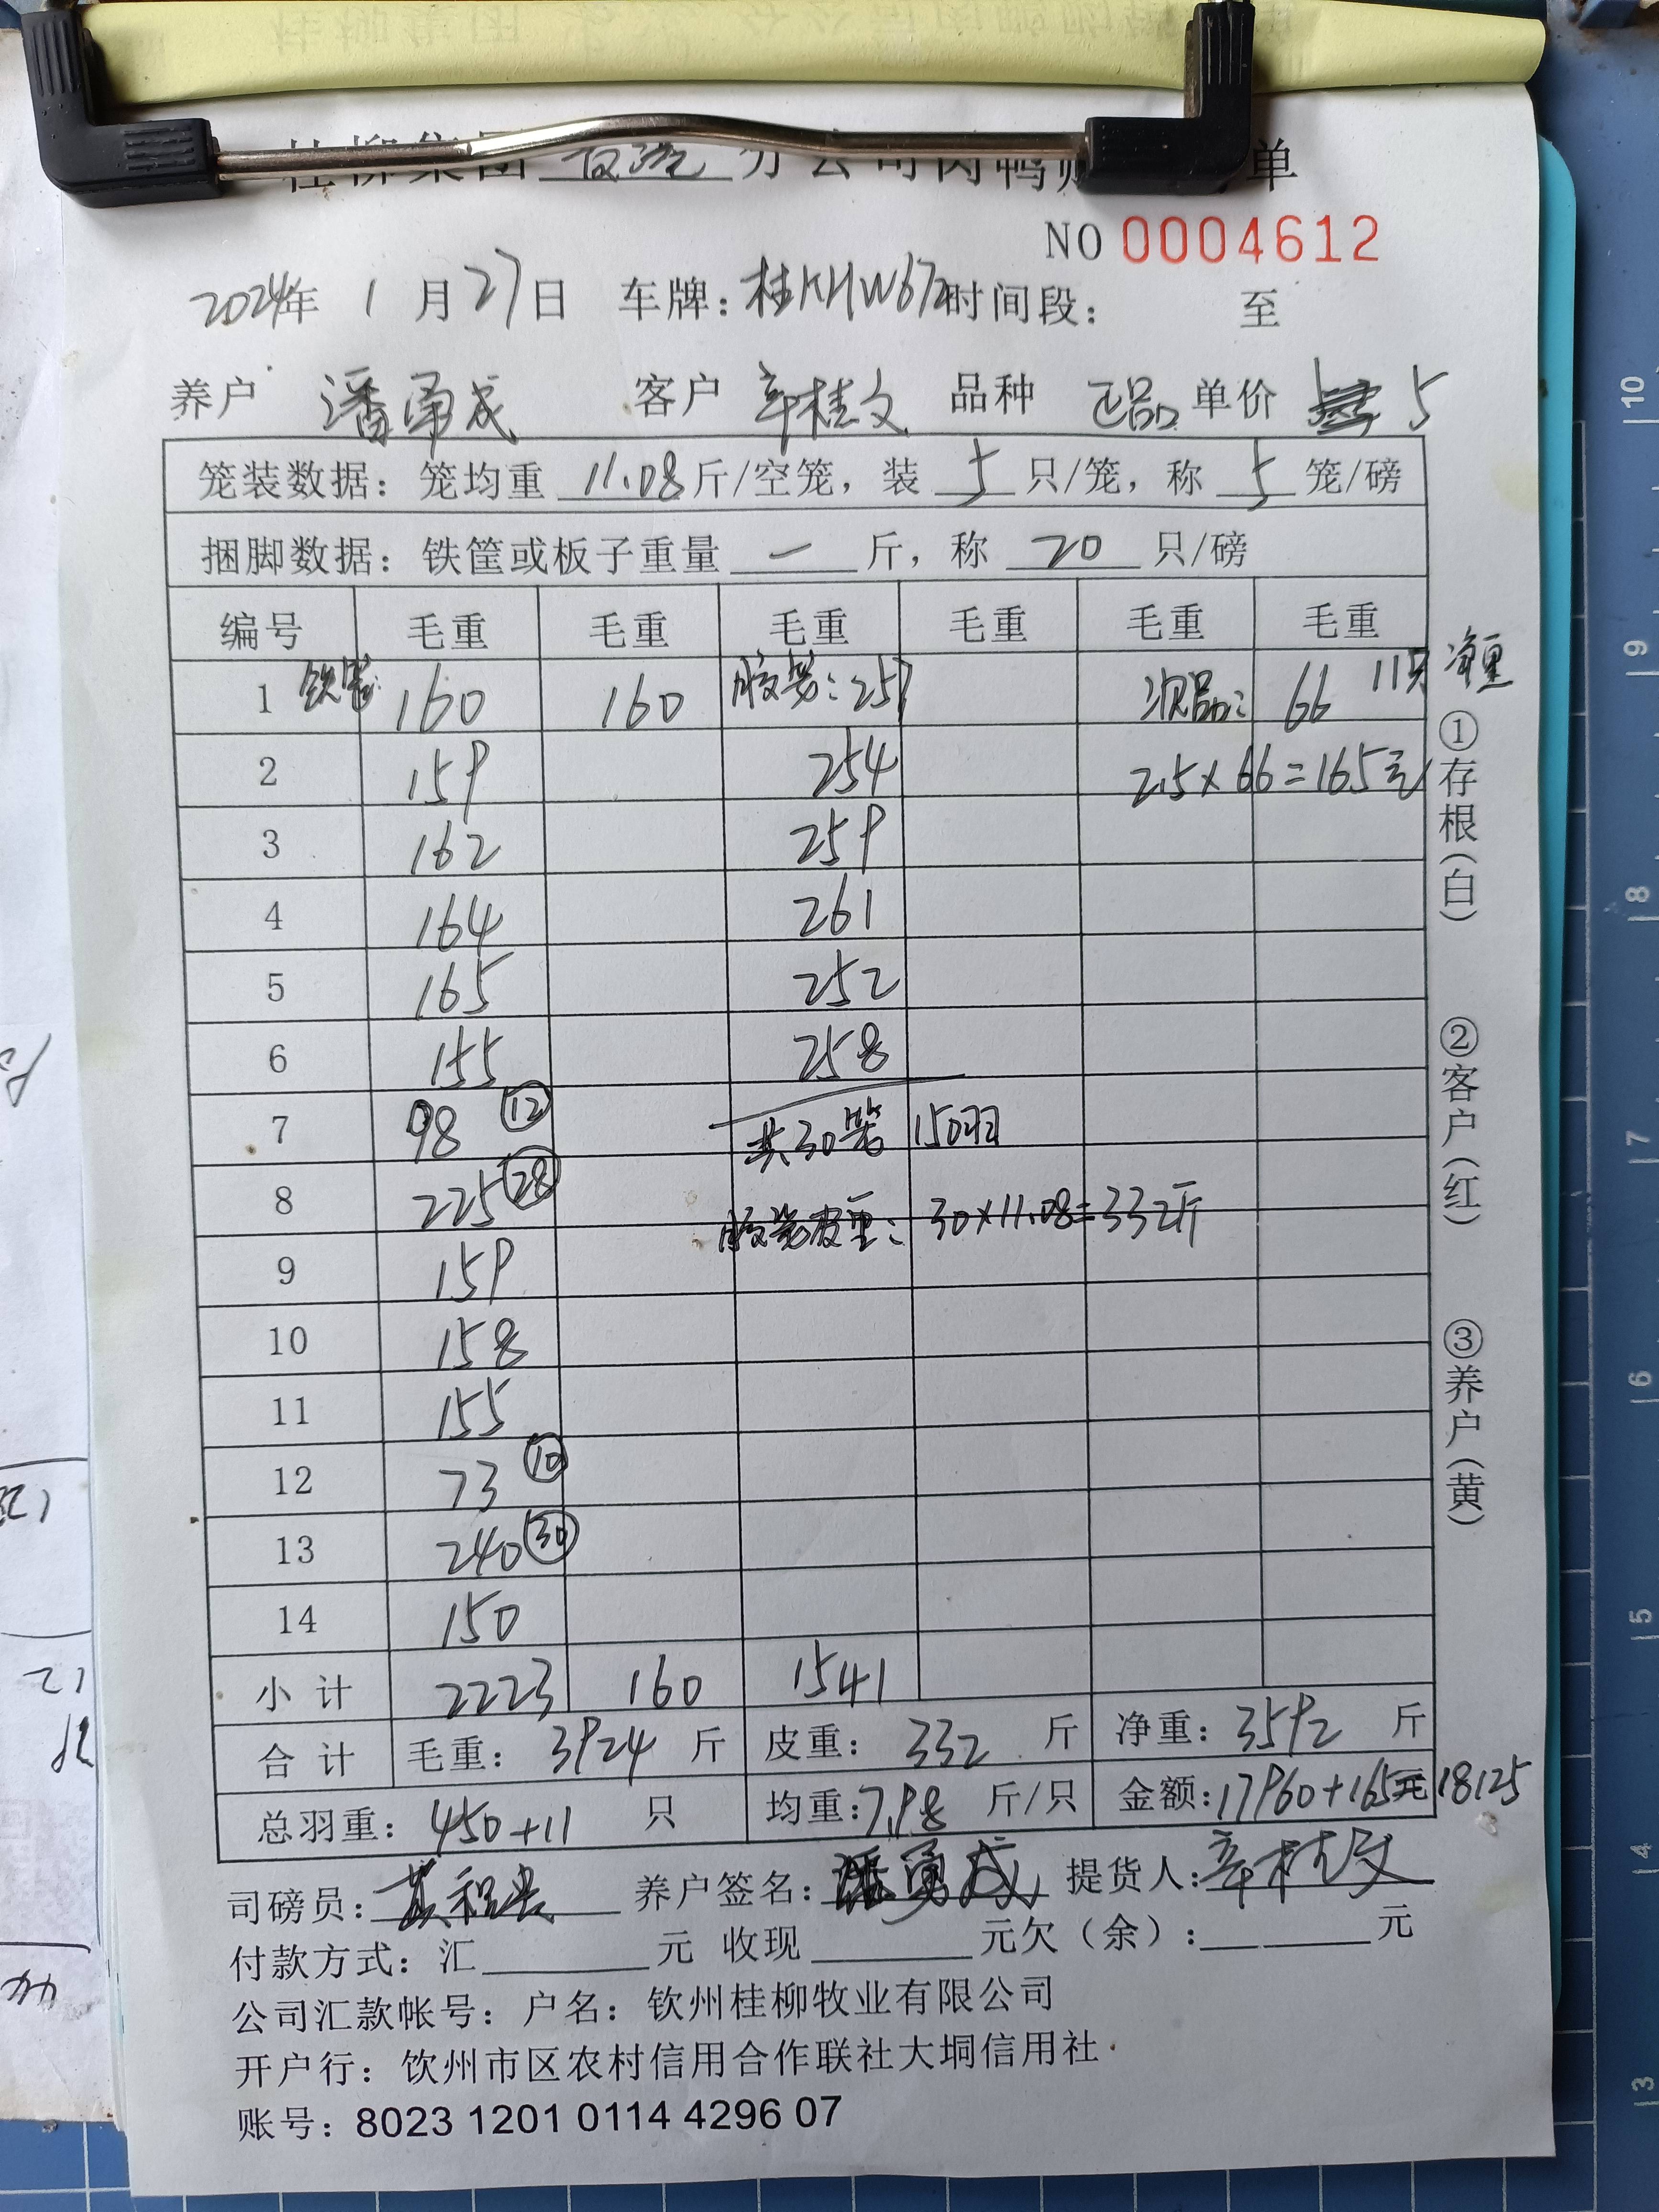 桂柳集团 分公司肉鸭 单
NO 0004612
2024年 1月27日 车牌:桂KHW672 时间段: 至
养户 潘勇成 客户 辛桂文 品种 正品 单价 5
笼装数据: 笼均重 11.08 斤/空笼, 装 5 只/笼, 称 5 笼/磅
捆脚数据: 铁筐或板子重量 一 斤, 称 20 只/磅
编号 毛重 毛重 毛重 毛重 毛重 毛重
1 铁笼 160 160 胶笼:257 次品: 66 11只 净重
2 159 254 2.5×66=165元
3 162 259
4 164 261
5 165 252
6 155 258
7 98 ⑫ 共30笼 150羽
8 225 ㉘ 胶笼皮重: 30×11.08=332斤
9 159
10 158
11 155
12 73 ⑩
13 240 ㉚
14 150
小计 2223 160 1541
合计 毛重: 3924 斤 皮重: 332 斤 净重: 3592 斤
总羽重: 450+11 只 均重:7.98 斤/只 金额:17960+165元 18125
司磅员: 养户签名:潘勇成 提货人:辛桂文
付款方式: 汇 元 收现 元欠(余): 元
公司汇款帐号: 户名: 钦州桂柳牧业有限公司
开户行: 钦州市区农村信用合作联社大垌信用社
账号: 8023 1201 0114 4296 07
①存根(白)
②客户(红)
③养户(黄)